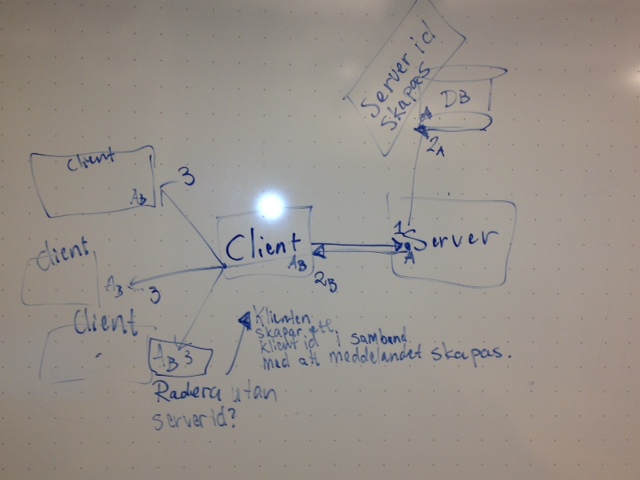 Server id
skapas
DB
2A
Client
AB
3
Client
AB
2B
1
Server
A
Client
AB
3
Client
AB 3
Klienten
skapar ett
klient id i samband
med att meddelandet skapas.
Radera utan
server id?